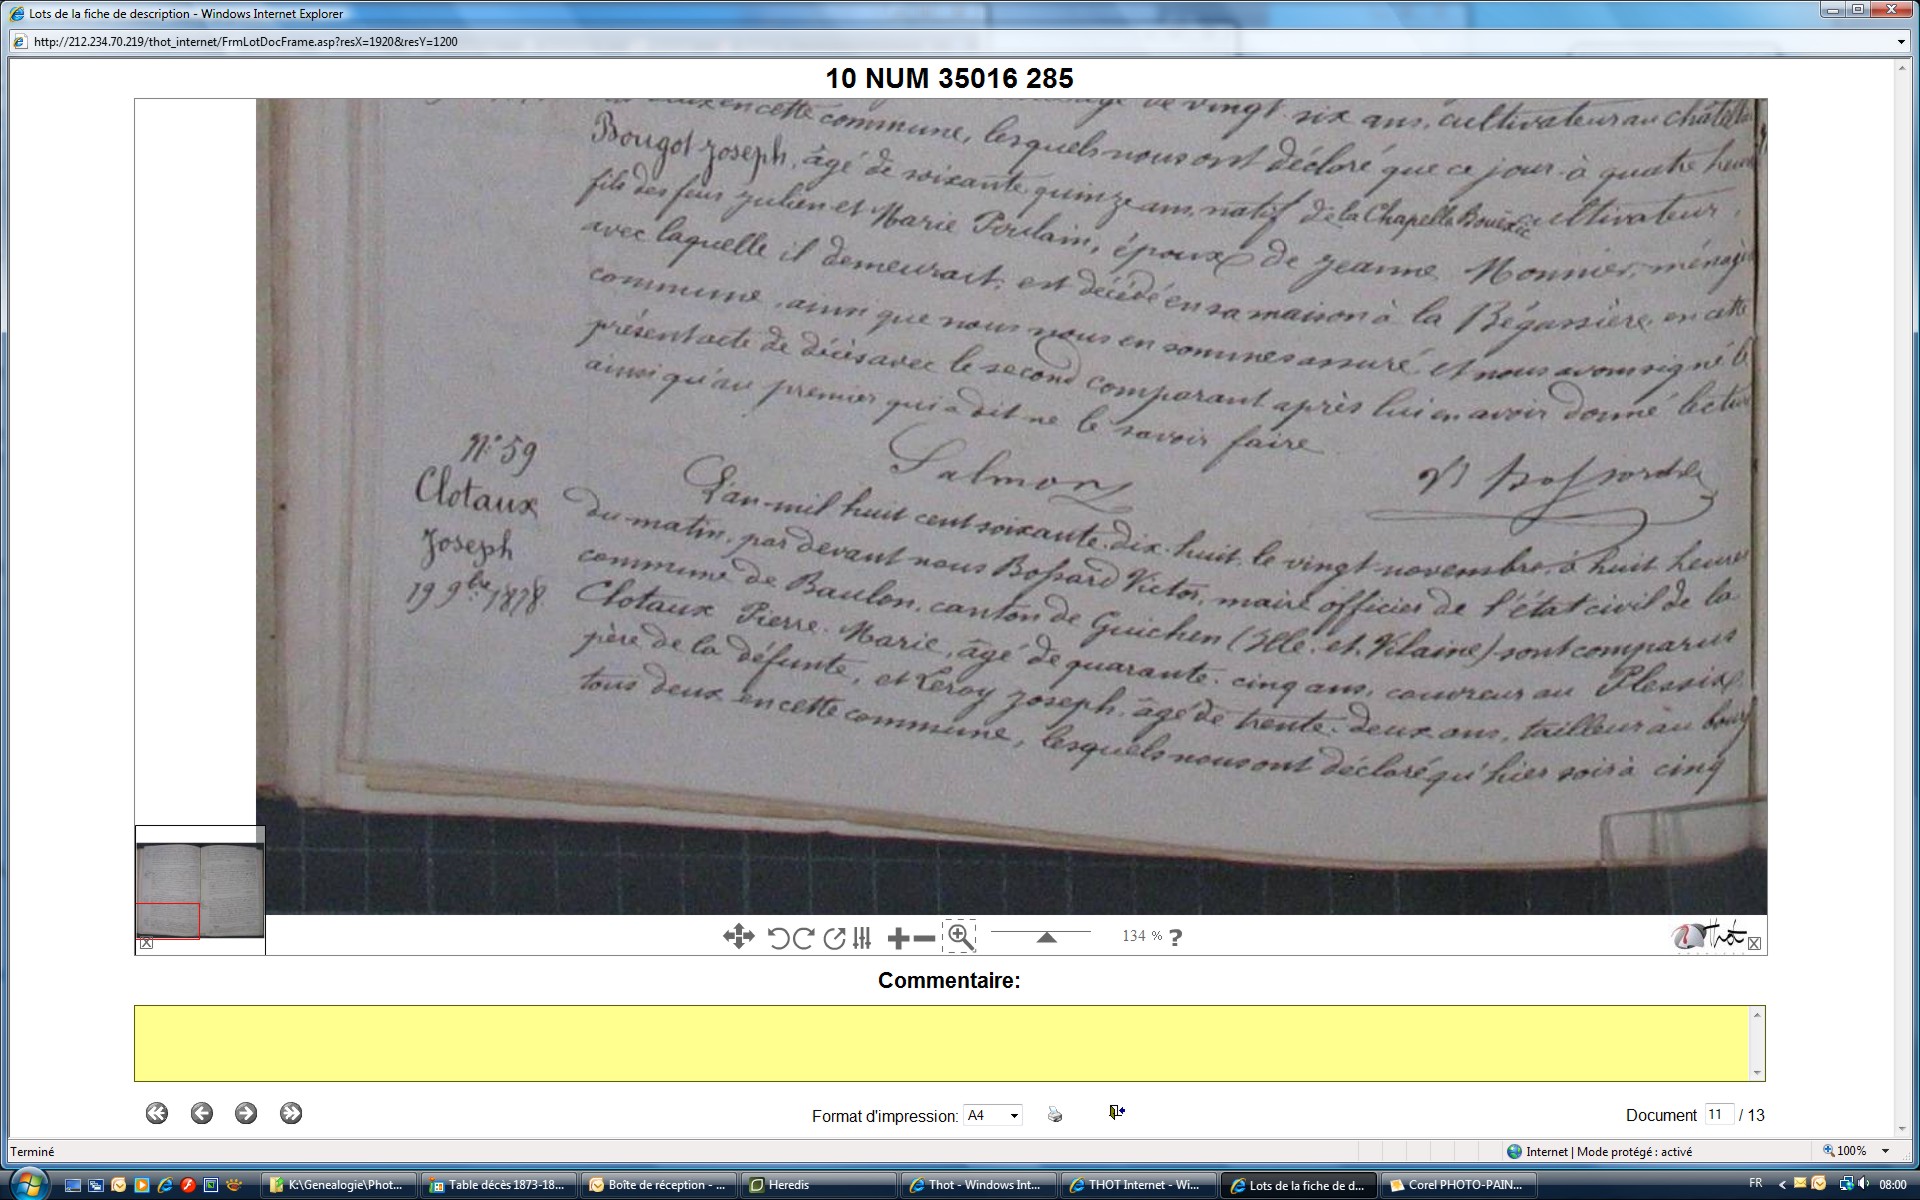 Lots de la fiche de description - Windows Internet Explorer
http://212.234.70.219/thot_internet/FrmLotDocFrame.asp?resX=1920&resY=1200
10 NUM 35016 285
en cette commune, lesquels nous ont déclaré que ce jour à quatre heures
Bougot Joseph, âgé de soixante quinze ans, natif de la Chapelle Bouëxic cultivateur,
fils des feus Julien et Marie Poulain, époux de Jeanne Monnier, ménagère
avec laquelle il demeurait, est décédé en sa maison à la Bégassière, en cette
commune, ainsi que nous nous en sommes assuré et nous avons signé le
présent acte de décès avec le second comparant après lui en avoir donné lecture
ainsi qu'au premier qui a dit ne le savoir faire.
Salmon
V Bossard
N° 59
Clotaux
Joseph
19 9bre 1878
L'an mil huit cent soixante dix huit, le vingt novembre, à huit heures
du matin, par devant nous Bossard Victor, maire officier de l'état civil de la
commune de Baulon, canton de Guichen (Ille et Vilaine) sont comparus
Clotaux Pierre Marie, âgé de quarante cinq ans, couvreur au Plessix
père de la défunte, et Leroy Joseph, âgé de trente deux ans, tailleur au bourg
tous deux en cette commune, lesquels nous ont déclaré qu'hier soir à cinq
134 % ?
Thot
Commentaire:
Format d'impression: A4
Document 11 / 13
Terminé
Internet | Mode protégé : activé
100%
K:\Genealogie\Phot...
Table décès 1873-18...
Boîte de réception - ...
Heredis
Thot - Windows Int...
THOT Internet - Wi...
Lots de la fiche de d...
Corel PHOTO-PAIN...
FR
08:00